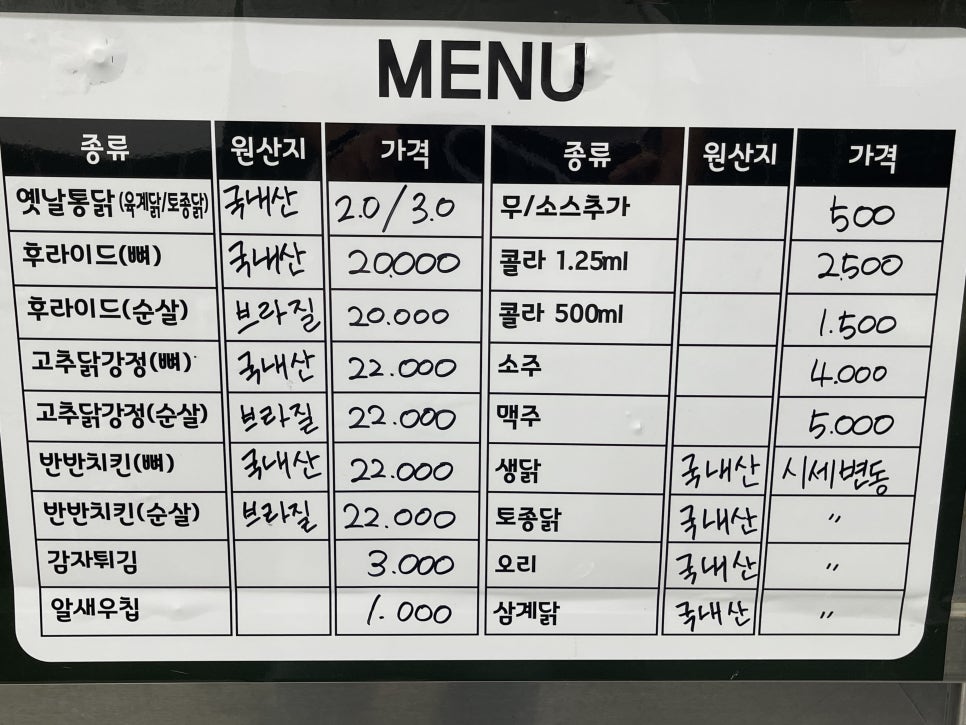 MENU
종류 원산지 가격 종류 원산지 가격
옛날통닭(육계닭/토종닭) 국내산 2.0/3.0 무/소스추가 500
후라이드(뼈) 국내산 20.000 콜라 1.25ml 2.500
후라이드(순살) 브라질 20.000 콜라 500ml 1.500
고추닭강정(뼈) 국내산 22.000 소주 4.000
고추닭강정(순살) 브라질 22.000 맥주 5.000
반반치킨(뼈) 국내산 22.000 생닭 국내산 시세변동
반반치킨(순살) 브라질 22.000 토종닭 국내산 〃
감자튀김 3.000 오리 국내산 〃
알새우칩 1.000 삼계닭 국내산 〃